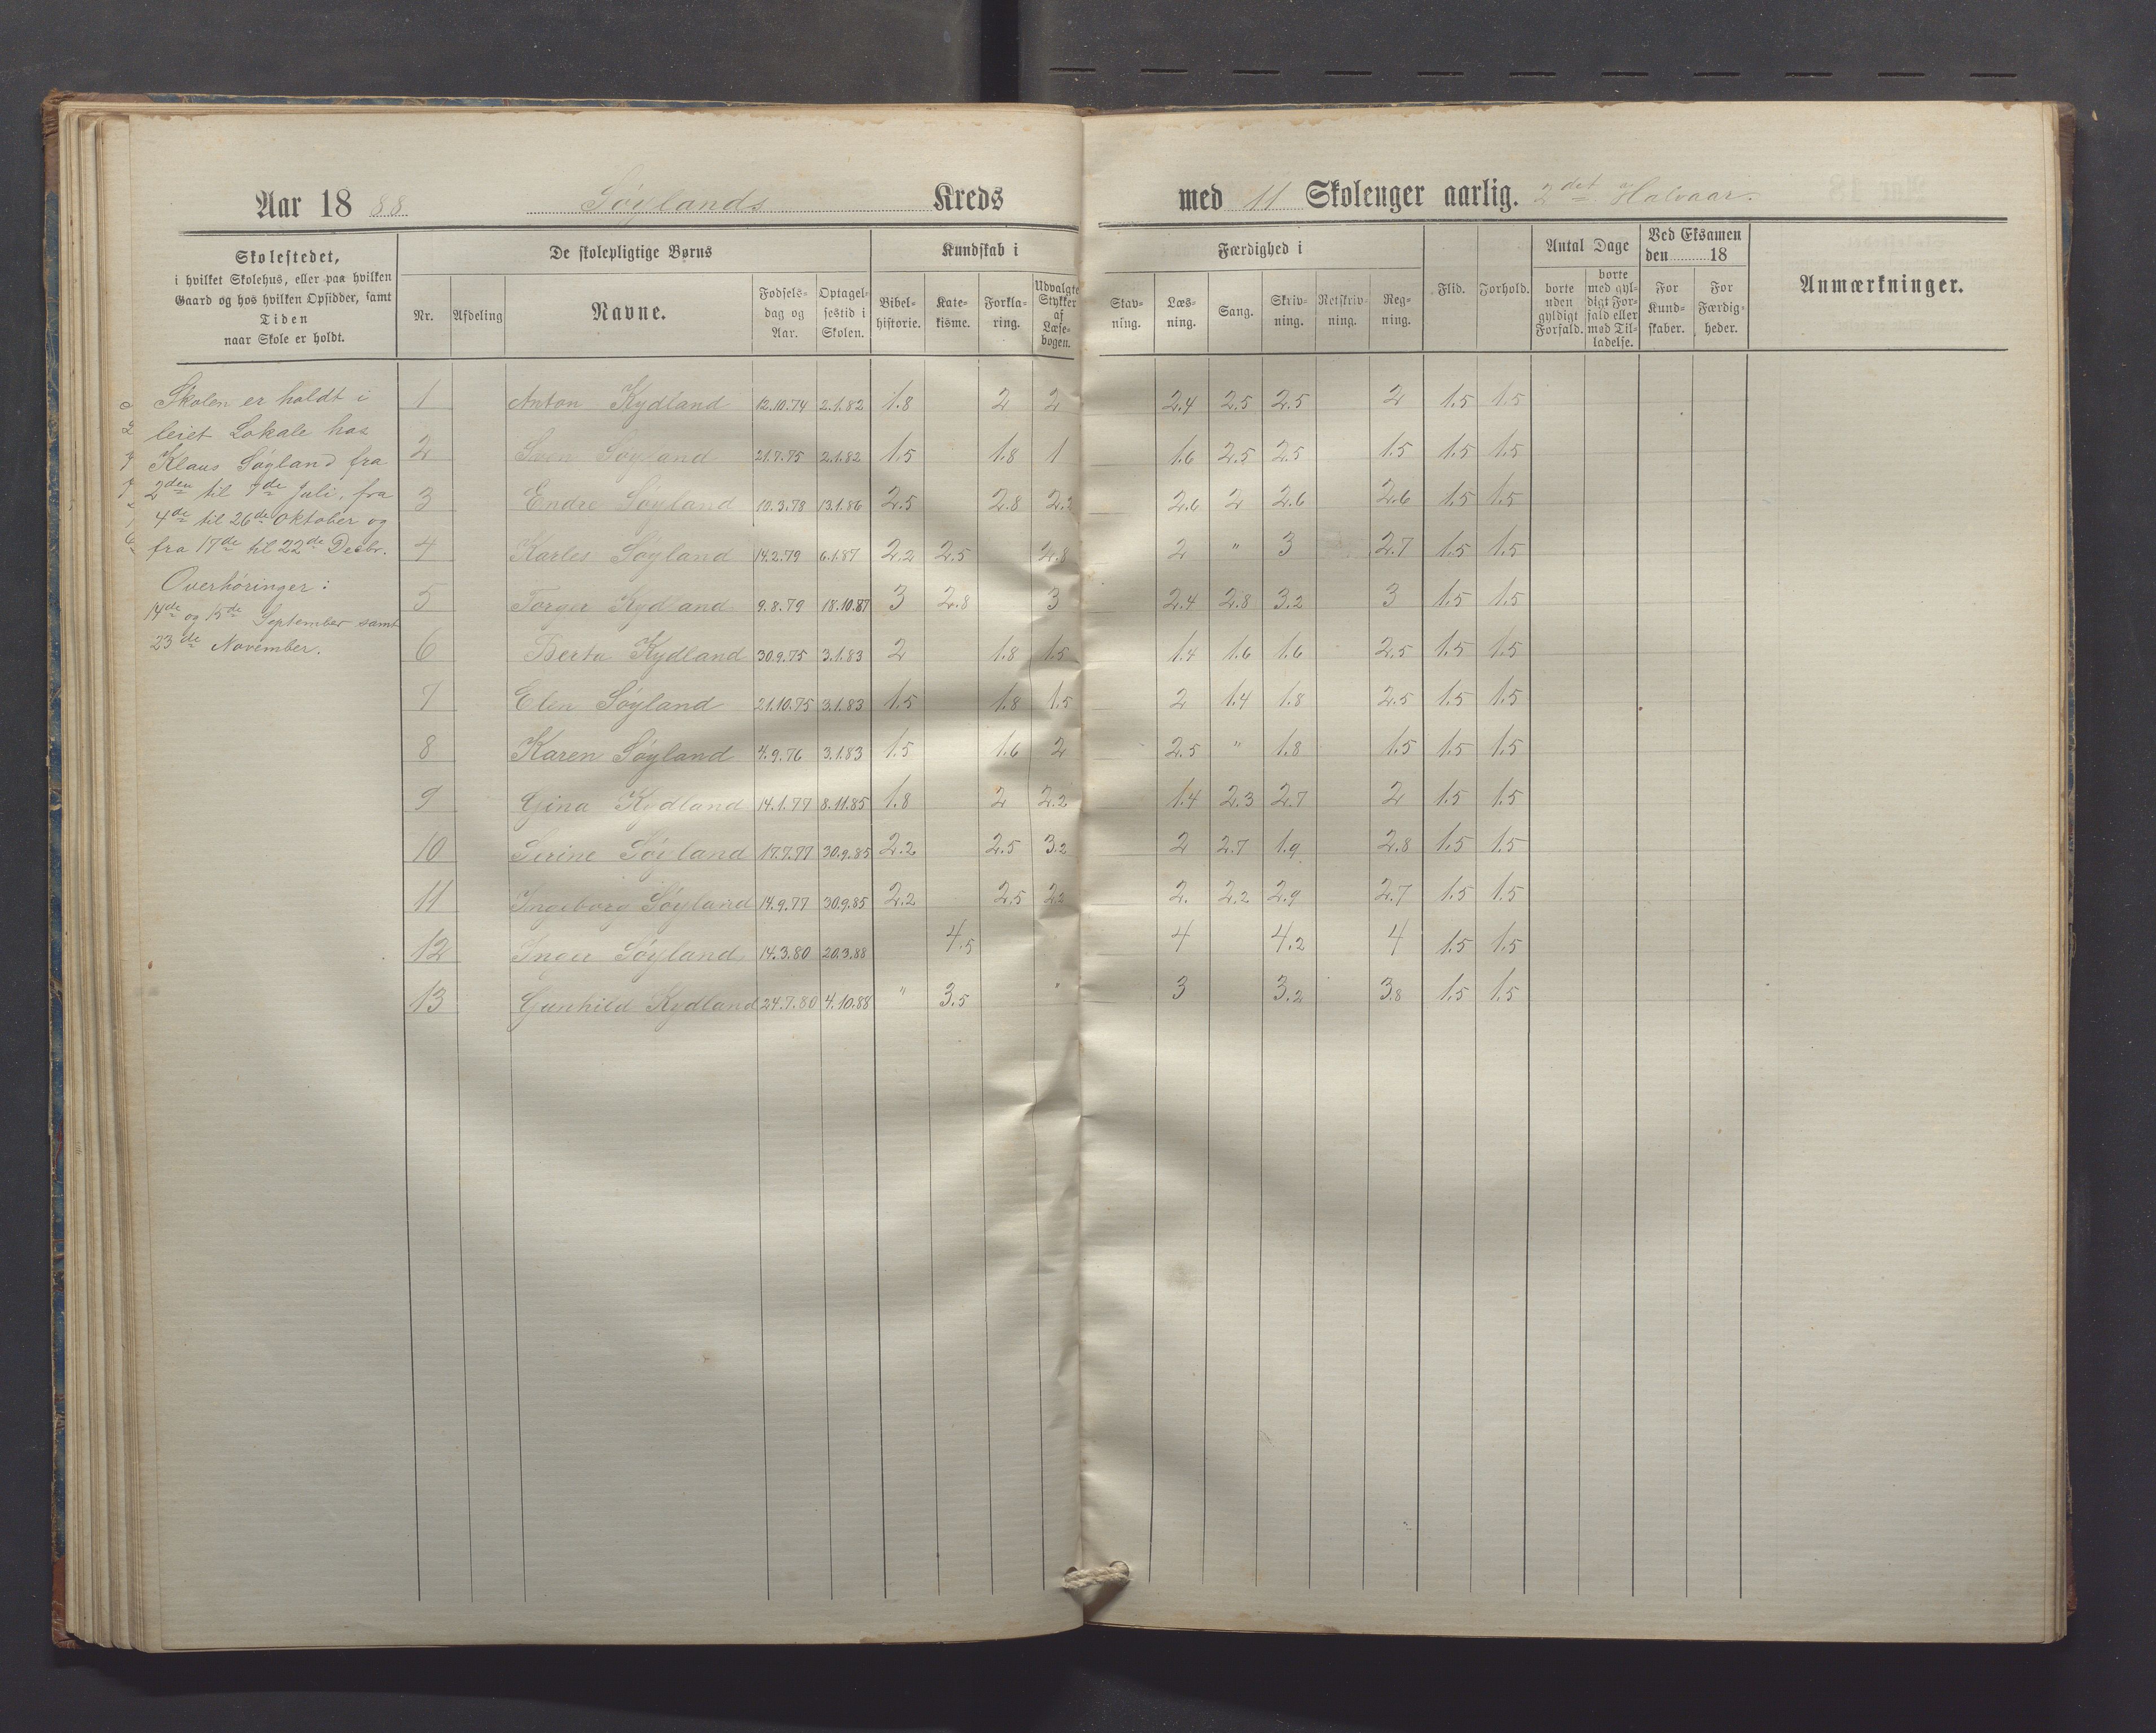 Aar 1888 Søylands Kreds med 11 Skoleuger aarlig. 2det Halvaar.
Skolestedet,
i hvilket Skolehus, eller paa hvilken
Gaard og hos hvilken Opsidder, samt
Tiden
naar Skole er holdt.
De skolepligtige Børns
Nr. Afdeling Navne. Fødsels-dag og Aar. Optagel-sestid i Skolen.
Kundskab i
Bibel-historie. Kate-kisme. Forkla-ring. Udvalgte Stykker af Læse-bogen.
Færdighed i
Stav-ning. Læs-ning. Sang. Skriv-ning. Retskriv-ning. Reg-ning.
Flid. Forhold.
Antal Dage
borte uden gyldigt Forfald. borte med gyl-digt For-fald eller med Til-ladelse.
Ved Eksamen
den 18
For Kund-skaber. For Færdig-heder.
Anmærkninger.
Skolen er holdt i
leiet Lokale hos
Klaus Søyland fra
2den til 7de Juli, fra
4de til 26de Oktober og
fra 17de til 22de Decbr.
Overhøringer:
14de og 15de September samt
23de November.
1 Anton Kydland 12.10.74 2.1.82 1.8 2 2 2.4 2.5 2.5 2 1.5 1.5
2 Sven Søyland 21.7.75 2.1.82 1.5 1.8 1 1.6 2.5 2.5 1.5 1.5 1.5
3 Endre Søyland 10.3.78 13.1.86 2.5 2.8 2.2 2.6 2 2.6 2.6 1.5 1.5
4 Karles Søyland 14.2.79 6.1.87 2.2 2.5 2.8 2 " 3 2.7 1.5 1.5
5 Torger Kydland 9.8.79 18.10.87 3 2.8 3 2.4 2.8 3.2 3 1.5 1.5
6 Berta Kydland 30.9.75 3.1.83 2 1.8 1.5 1.4 1.6 1.6 2.5 1.5 1.5
7 Elen Søyland 21.10.75 3.1.83 1.5 1.8 1.5 2 1.4 1.8 2.5 1.5 1.5
8 Karen Søyland 4.9.76 3.1.83 1.5 1.6 2 2.5 " 1.8 1.5 1.5 1.5
9 Gina Kydland 14.1.77 8.11.85 1.8 2 2.2 1.4 2.3 2.7 2 1.5 1.5
10 Serine Søyland 17.7.77 30.9.85 2.2 2.5 3.2 2 2.7 1.9 2.8 1.5 1.5
11 Ingeborg Søyland 14.9.77 30.9.85 2.2 2.5 2.2 2. 2.2 2.9 2.7 1.5 1.5
12 Inger Søyland 14.3.80 20.3.88 4.5 4 4.2 4 1.5 1.5
13 Gunhild Kydland 24.7.80 4.10.88 " 3.5 " 3 3.2 3.8 1.5 1.5